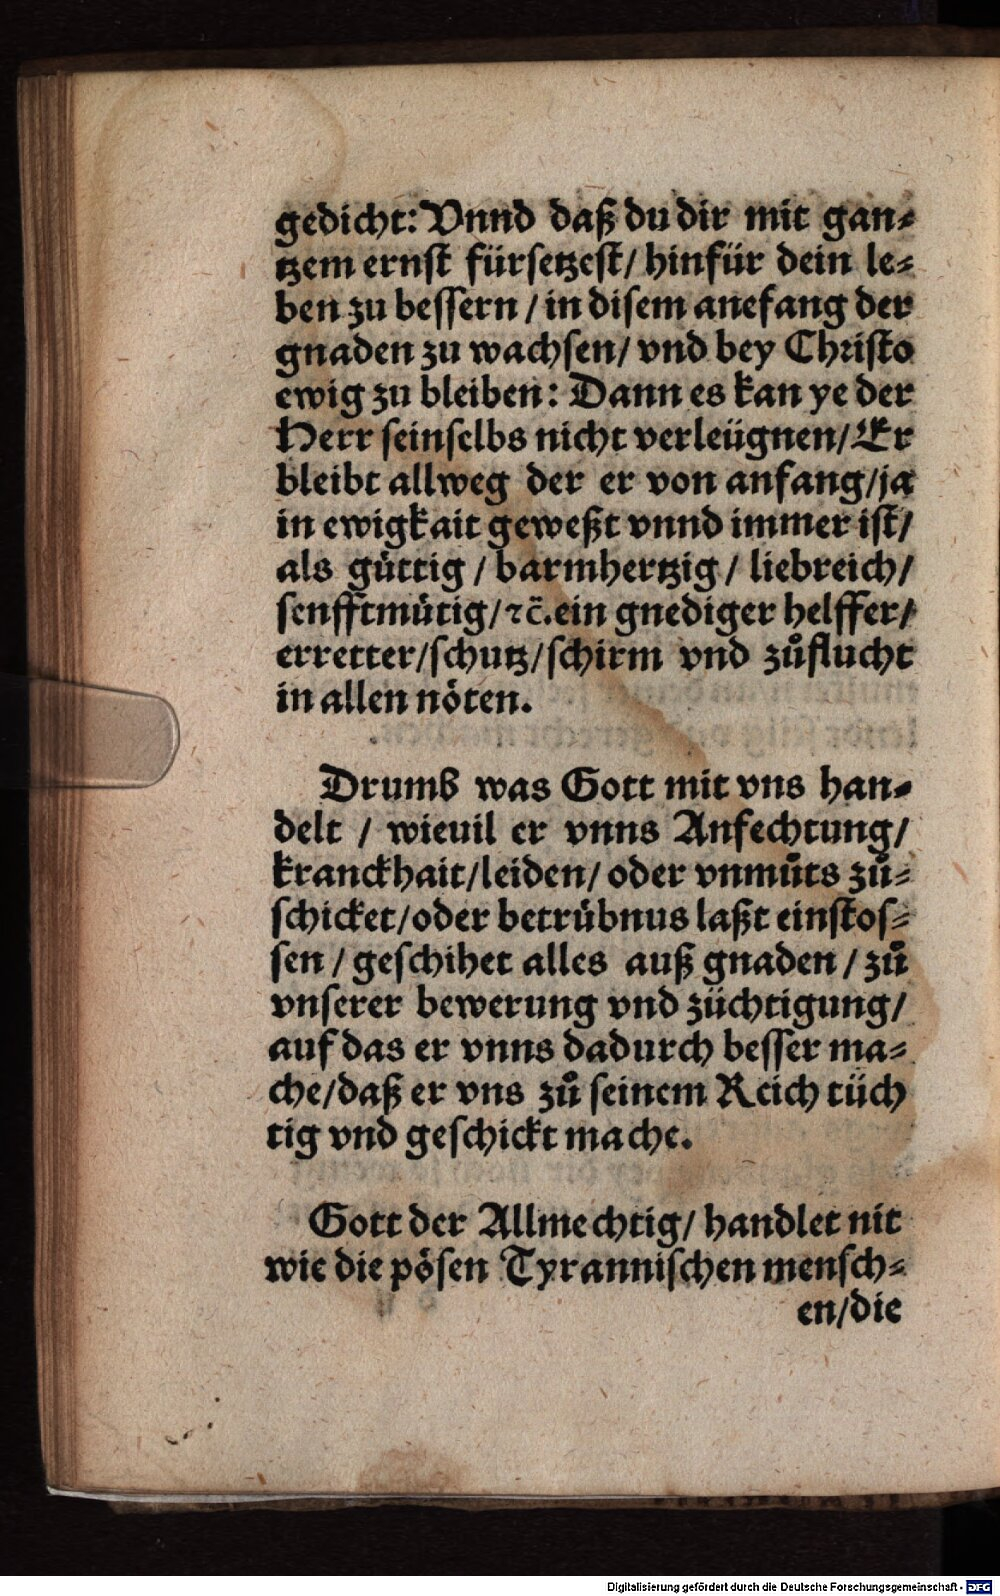 gedicht: Vnnd daß du dir mit gan⸗
tzem ernst fürsetzest/ hinfür dein le⸗
ben zu bessern / in disem anefang der
gnaden zu wachsen/ vnd bey Christo
ewig zu bleiben: Dann es kan ye der
Herr seinselbs nicht verleügnen/ Er
bleibt allweg der er von anfang/ja
in ewigkait geweßt vnnd immer ist/
als guͤttig / barmhertzig / liebreich/
senfftmuͤtig/ ⁊c̃. ein gnediger helffer/
erretter/schutz/schirm vnd zůflucht
in allen noͤten.
Drumb was Gott mit vns han⸗
delt / wieuil er vnns Anfechtung/
kranckhait/leiden/ oder vnmůts zů⸗
schicket/oder betruͤbnus laßt einstos⸗
sen / geschihet alles auß gnaden / zů
vnserer bewerung vnd züchtigung/
auf das er vnns dadurch besser ma⸗
che/daß er vns zů seinem Reich tüch
tig vnd geschickt mache.
Gott der Allmechtig/ handlet nit
wie die poͤsen Tyrannischen mensch⸗
en/die
Digitalisierung gefördert durch die Deutsche Forschungsgemeinschaft - DFG